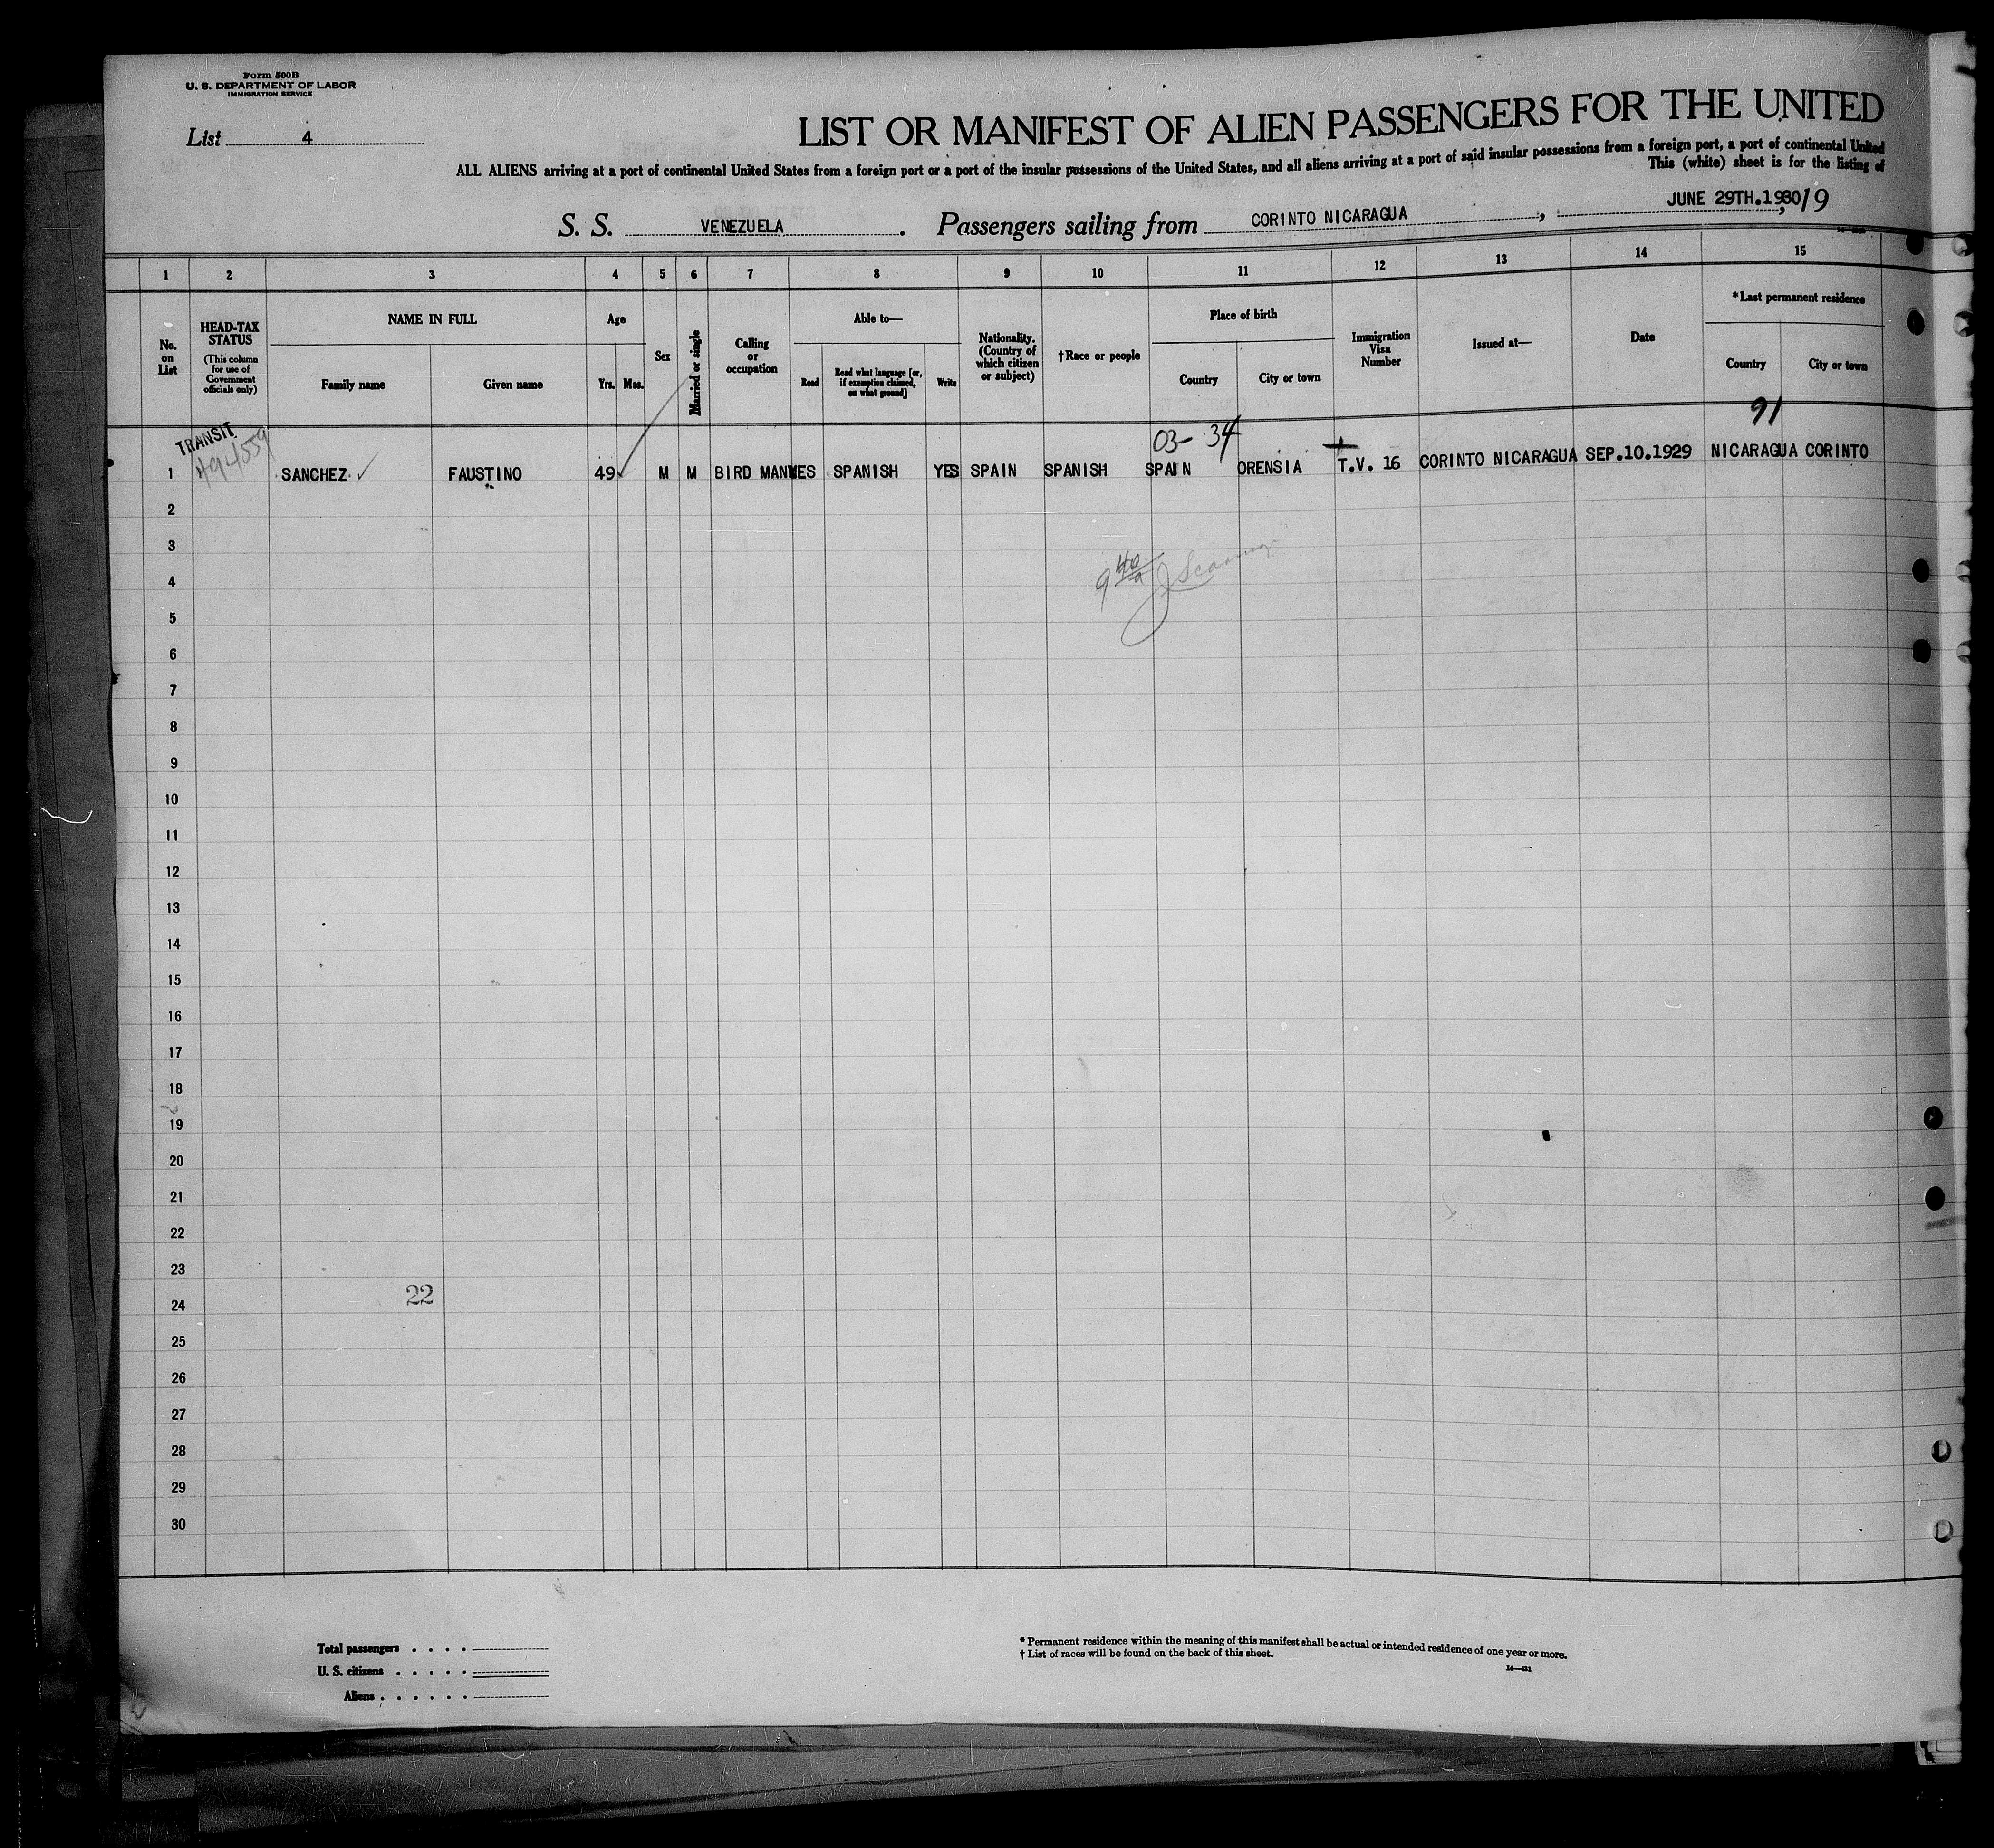 Form 500B
U. S. DEPARTMENT OF LABOR
IMMIGRATION SERVICE
List 4
LIST OR MANIFEST OF ALIEN PASSENGERS FOR THE UNITED
ALL ALIENS arriving at a port of continental United States from a foreign port or a port of the insular possessions of the United States, and all aliens arriving at a port of said insular possessions from a foreign port, a port of continental United
This (white) sheet is for the listing of
S. S. VENEZUELA. Passengers sailing from CORINTO NICARAGUA, JUNE 29TH.1930, 19
1 2 3 4 5 6 7 8 9 10 11 12 13 14 15
No. on List
HEAD-TAX STATUS
(This column for use of Government officials only)
NAME IN FULL
Family name
Given name
Age
Yrs. Mos.
Sex
Married or single
Calling or occupation
Able to—
Read
Read what language [or, if exemption claimed, on what ground]
Write
Nationality. (Country of which citizen or subject)
†Race or people
Place of birth
Country
City or town
Immigration Visa Number
Issued at—
Date
*Last permanent residence
Country
City or town
91
TRANSIT
03- 34
494559
1 SANCHEZ FAUSTINO 49 M M BIRD MAN YES SPANISH YES SPAIN SPANISH SPAIN ORENSIA T.V. 16 CORINTO NICARAGUA SEP.10.1929 NICARAGUA CORINTO
2
3
4
9 40/a
5
6
7
8
9
10
11
12
13
14
15
16
17
18
19
20
21
22
23
22
24
25
26
27
28
29
30
Total passengers . . . .
U. S. citizens . . . . .
Aliens . . . . . .
* Permanent residence within the meaning of this manifest shall be actual or intended residence of one year or more.
† List of races will be found on the back of this sheet.